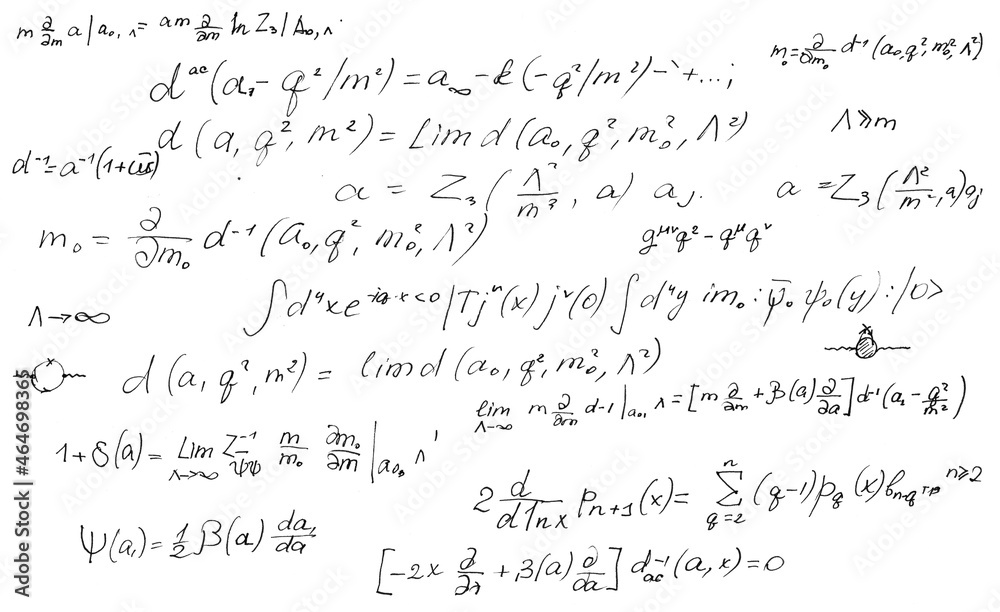 m ∂/∂m a | a₀, Λ = am ∂/∂m ln Z₃ | Δ₀, Λ
m₀ = ∂/∂m₀ d⁻¹ (a₀, q², m₀², Λ²)
dᵃᶜ (a₁ - q²/m²) = a∞ - k (-q²/m²) -` + ...;
d (a, q², m²) = Lim d (a₀, q², m₀², Λ²)
Λ ≫ m
d⁻¹ = a⁻¹ (1 +
a = Z₃ ( Λ²/m², a) aⱼ.
a = Z₃ ( Λ²/m², a) aⱼ
m₀ = ∂/∂m₀ d⁻¹ (a₀, q², m₀², Λ²)
g^μν q² - q^μ q^ν
∫ d⁴x e^-iq·x <0 | T j^μ (x) j^ν (0) ∫ d⁴y im₀ : ψ̄₀ ψ₀ (y) : | 0>
Λ → ∞
d (a, q², m²) = lim d (a₀, q², m₀², Λ²)
lim Λ→∞ m ∂/∂m d-1 | a₀, Λ = [m ∂/∂m + β(a) ∂/∂a] d⁻¹ (a₁ - q²/m²)
1 + δ(a) = Lim Λ→∞ Z⁻¹ ψ̄ψ m/m₀ ∂m₀/∂m | a₀, Λ
2 d/dlnx Pn+1 (x) = Σ n q=2 (q-1) Pq (x) bn-q n≥2
Ψ(a₁) = 1/2 β(a) da₁/da
[-2x ∂/∂λ + β(a) ∂/∂a] d⁻¹ac (a, x) = 0
Adobe Stock | #464698365